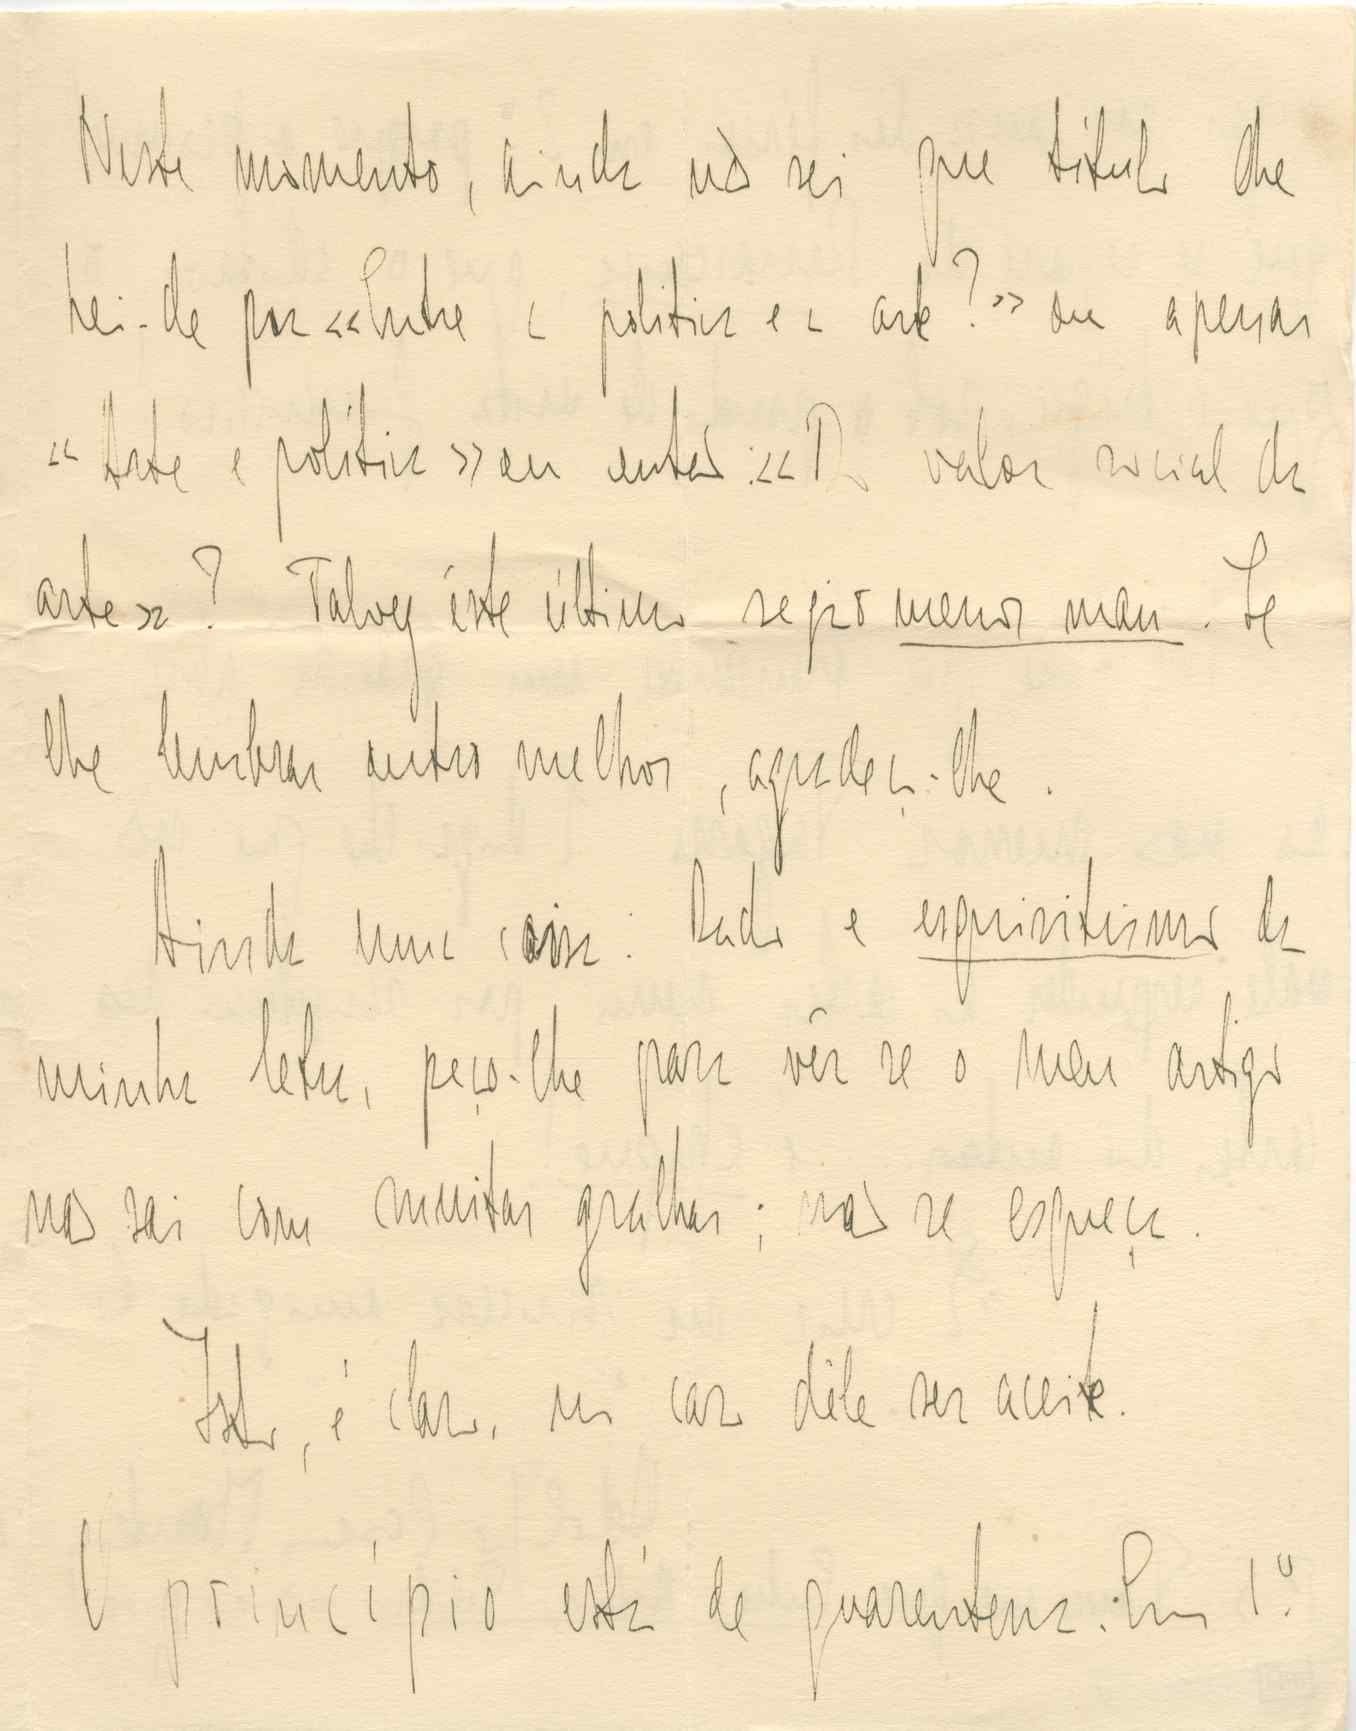 Neste momento, ainda não sei que título lhe
hei-de pôr «Entre a política e a arte?» ou apenas
«Arte e política» ou então: «Do valor social da
arte»? Talvez êste último seja o menos mau. Se
lhe lembrar outro melhor, agradeço-lhe.
Ainda uma coisa: Dado o esquisitismo da
minha letra, peço-lhe para vêr se o meu artigo
não sai com muitas gralhas; não se esqueça.
Isto, é claro, no caso dêle ser aceite.
O princípio está de quarentena. Em 1º